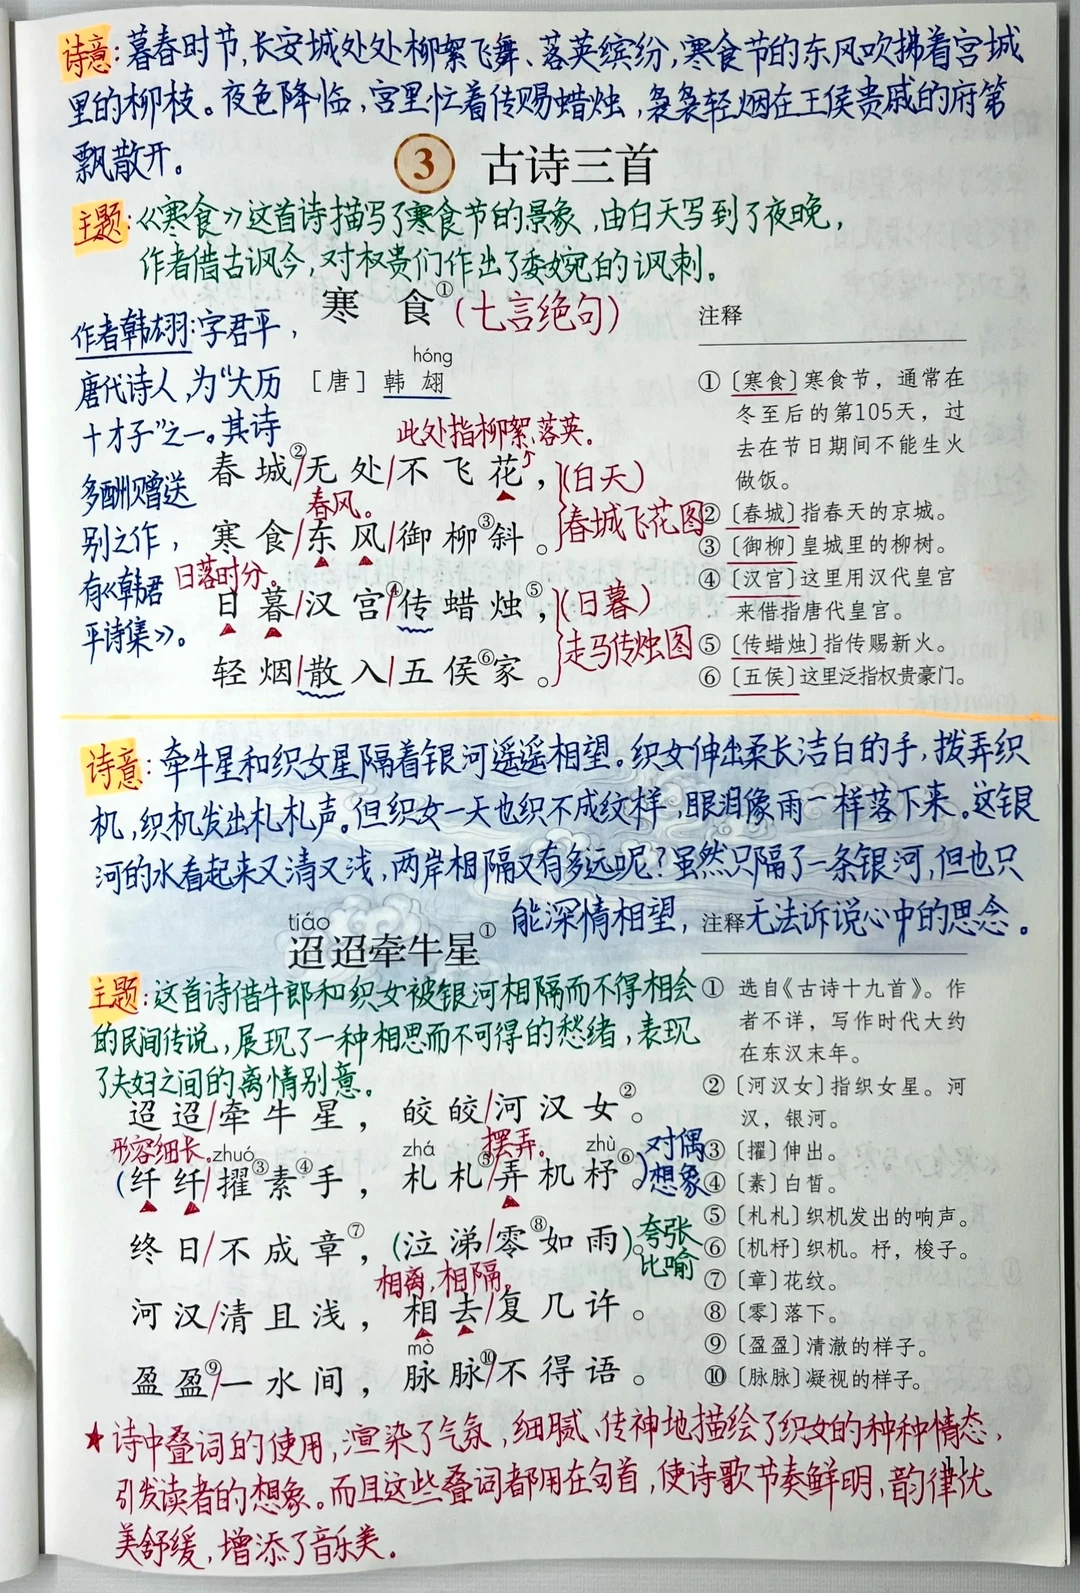 诗意:暮春时节,长安城处处柳絮飞舞、落英缤纷,寒食节的东风吹拂着宫城
里的柳枝。夜色降临,宫里忙着传赐蜡烛,袅袅轻烟在王侯贵戚的府第
飘散开。
3 古诗三首
主题:《寒食》这首诗描写了寒食节的景象,由白天写到了夜晚,
作者借古讽今,对权贵们作出了委婉的讽刺。
寒 食①(七言绝句)
hóng
[唐] 韩 翃
作者韩翃:字君平,
唐代诗人,为“大历
十才子”之一。其诗
多酬赠送
别之作,
有《韩君
平诗集》。
此处指柳絮、落英。
春城②/无处/不飞花,
(白天)
春风。
春城飞花图
寒食/东风/御柳③斜。
日落时分。
日暮/汉宫④/传蜡烛⑤,
(日暮)
走马传烛图
轻烟/散入/五侯⑥家。
注释
① [寒食]寒食节,通常在
冬至后的第105天,过
去在节日期间不能生火
做饭。
② [春城]指春天的京城。
③ [御柳]皇城里的柳树。
④ [汉宫]这里用汉代皇宫
来借指唐代皇宫。
⑤ [传蜡烛]指传赐新火。
⑥ [五侯]这里泛指权贵豪门。
诗意:牵牛星和织女星隔着银河遥遥相望。织女伸出柔长洁白的手,拨弄织
机,织机发出札札声。但织女一天也织不成纹样,眼泪像雨一样落下来。这银
河的水看起来又清又浅,两岸相隔又有多远呢?虽然只隔了一条银河,但也只
能深情相望,无法诉说心中的思念。
tiáo
迢迢牵牛星①
主题:这首诗借牛郎和织女被银河相隔而不得相会
的民间传说,展现了一种相思而不可得的愁绪,表现
了夫妇之间的离情别意。
迢迢/牵牛星,皎皎/河汉女②。
形容细长。zhuó zhá 摆弄。 zhù
(纤纤/擢③素④手,札札⑤/弄机杼⑥)。
对偶
想象
终日/不成章⑦,(泣涕/零⑧如雨)。
夸张
比喻
相离,相隔。
河汉/清且浅,相去/复几许。
mò
盈盈⑨/一水间,脉脉⑩/不得语。
注释
① 选自《古诗十九首》。作
者不详,写作时代大约
在东汉末年。
② [河汉女]指织女星。河
汉,银河。
③ [擢]伸出。
④ [素]白皙。
⑤ [札札]织机发出的响声。
⑥ [机杼]织机。杼,梭子。
⑦ [章]花纹。
⑧ [零]落下。
⑨ [盈盈]清澈的样子。
⑩ [脉脉]凝视的样子。
★诗中叠词的使用,渲染了气氛,细腻、传神地描绘了织女的种种情态,
引发读者的想象。而且这些叠词都用在句首,使诗歌节奏鲜明,韵律优
美舒缓,增添了音乐美。
11